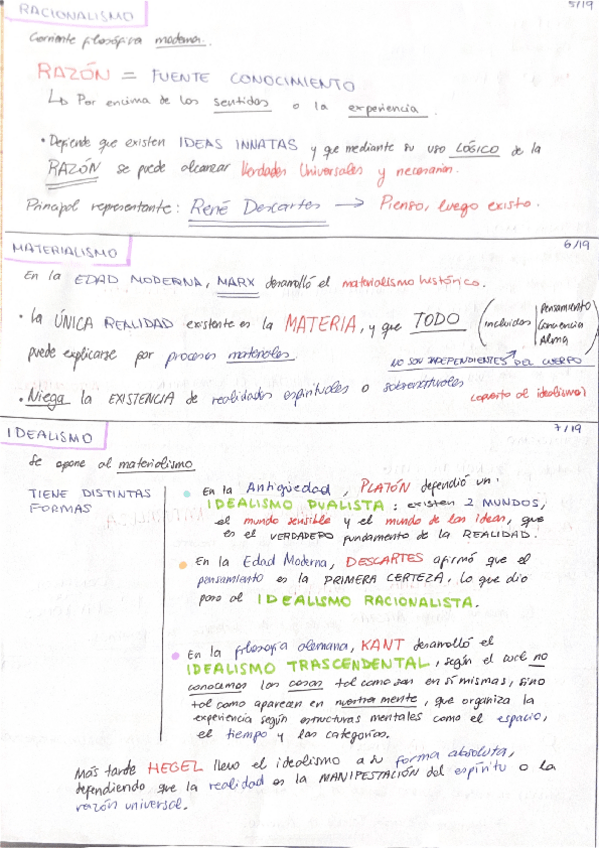 RACIONALISMO
5/19
Corriente filosófica moderna.
RAZÓN = FUENTE CONOCIMIENTO
↳ Por encima de los sentidos o la experiencia.
• Defiende que existen IDEAS INNATAS y que mediante su uso LÓGICO de la
RAZÓN se puede alcanzar Verdades Universales y necesarias.
Principal representante: René Descartes → Pienso, luego existo.
MATERIALISMO
6/19
En la EDAD MODERNA, MARX desarrolló el materialismo histórico.
• La ÚNICA REALIDAD existente es la MATERIA, y que TODO (incluidos Pensamiento
Conciencia
Alma)
puede explicarse por procesos materiales.
NO SON INDEPENDIENTES DEL CUERPO
• Niega la EXISTENCIA de realidades espirituales o sobrenaturales
(opuesto al idealismo)
IDEALISMO
7/19
Se opone al materialismo
TIENE DISTINTAS
FORMAS
• En la Antigüedad, PLATÓN defendió un
IDEALISMO DUALISTA: existen 2 MUNDOS,
el mundo sensible y el mundo de las ideas, que
es el VERDADERO fundamento de la REALIDAD.
• En la Edad Moderna, DESCARTES afirmó que el
pensamiento es la PRIMERA CERTEZA, lo que dio
paso al IDEALISMO RACIONALISTA.
• En la filosofía alemana, KANT desarrolló el
IDEALISMO TRASCENDENTAL, según el cual no
conocemos las cosas tal como son en sí mismas, sino
tal como aparecen en nuestra mente, que organiza la
experiencia según estructuras mentales como el espacio,
el tiempo y las categorías.
Más tarde HEGEL llevo el idealismo a su forma absoluta,
defendiendo que la realidad es la MANIFESTACIÓN del espíritu o la
razón universal.